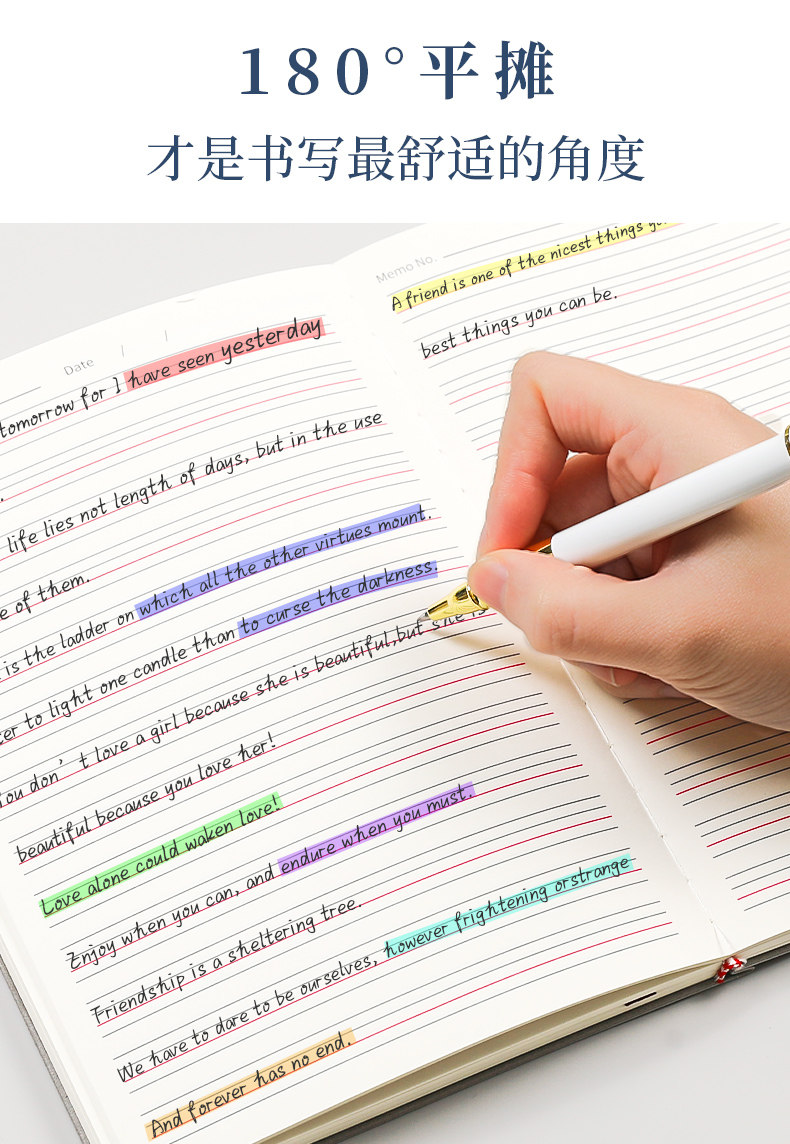 180°平摊
才是书写最舒适的角度
Date / /
tomorrow for I have seen yesterday
.
life lies not length of days, but in the use
e of them.
is the ladder on which all the other virtues mount.
er to light one candle than to curse the darkness.
You don't love a girl because she is beautiful,but she is
beautiful because you love her!
Love alone could waken love!
Enjoy when you can, and endure when you must.
Friendship is a sheltering tree.
We have to dare to be ourselves, however frightening orstrange
And forever has no end.
Memo No.
A friend is one of the nicest things
best things you can be.